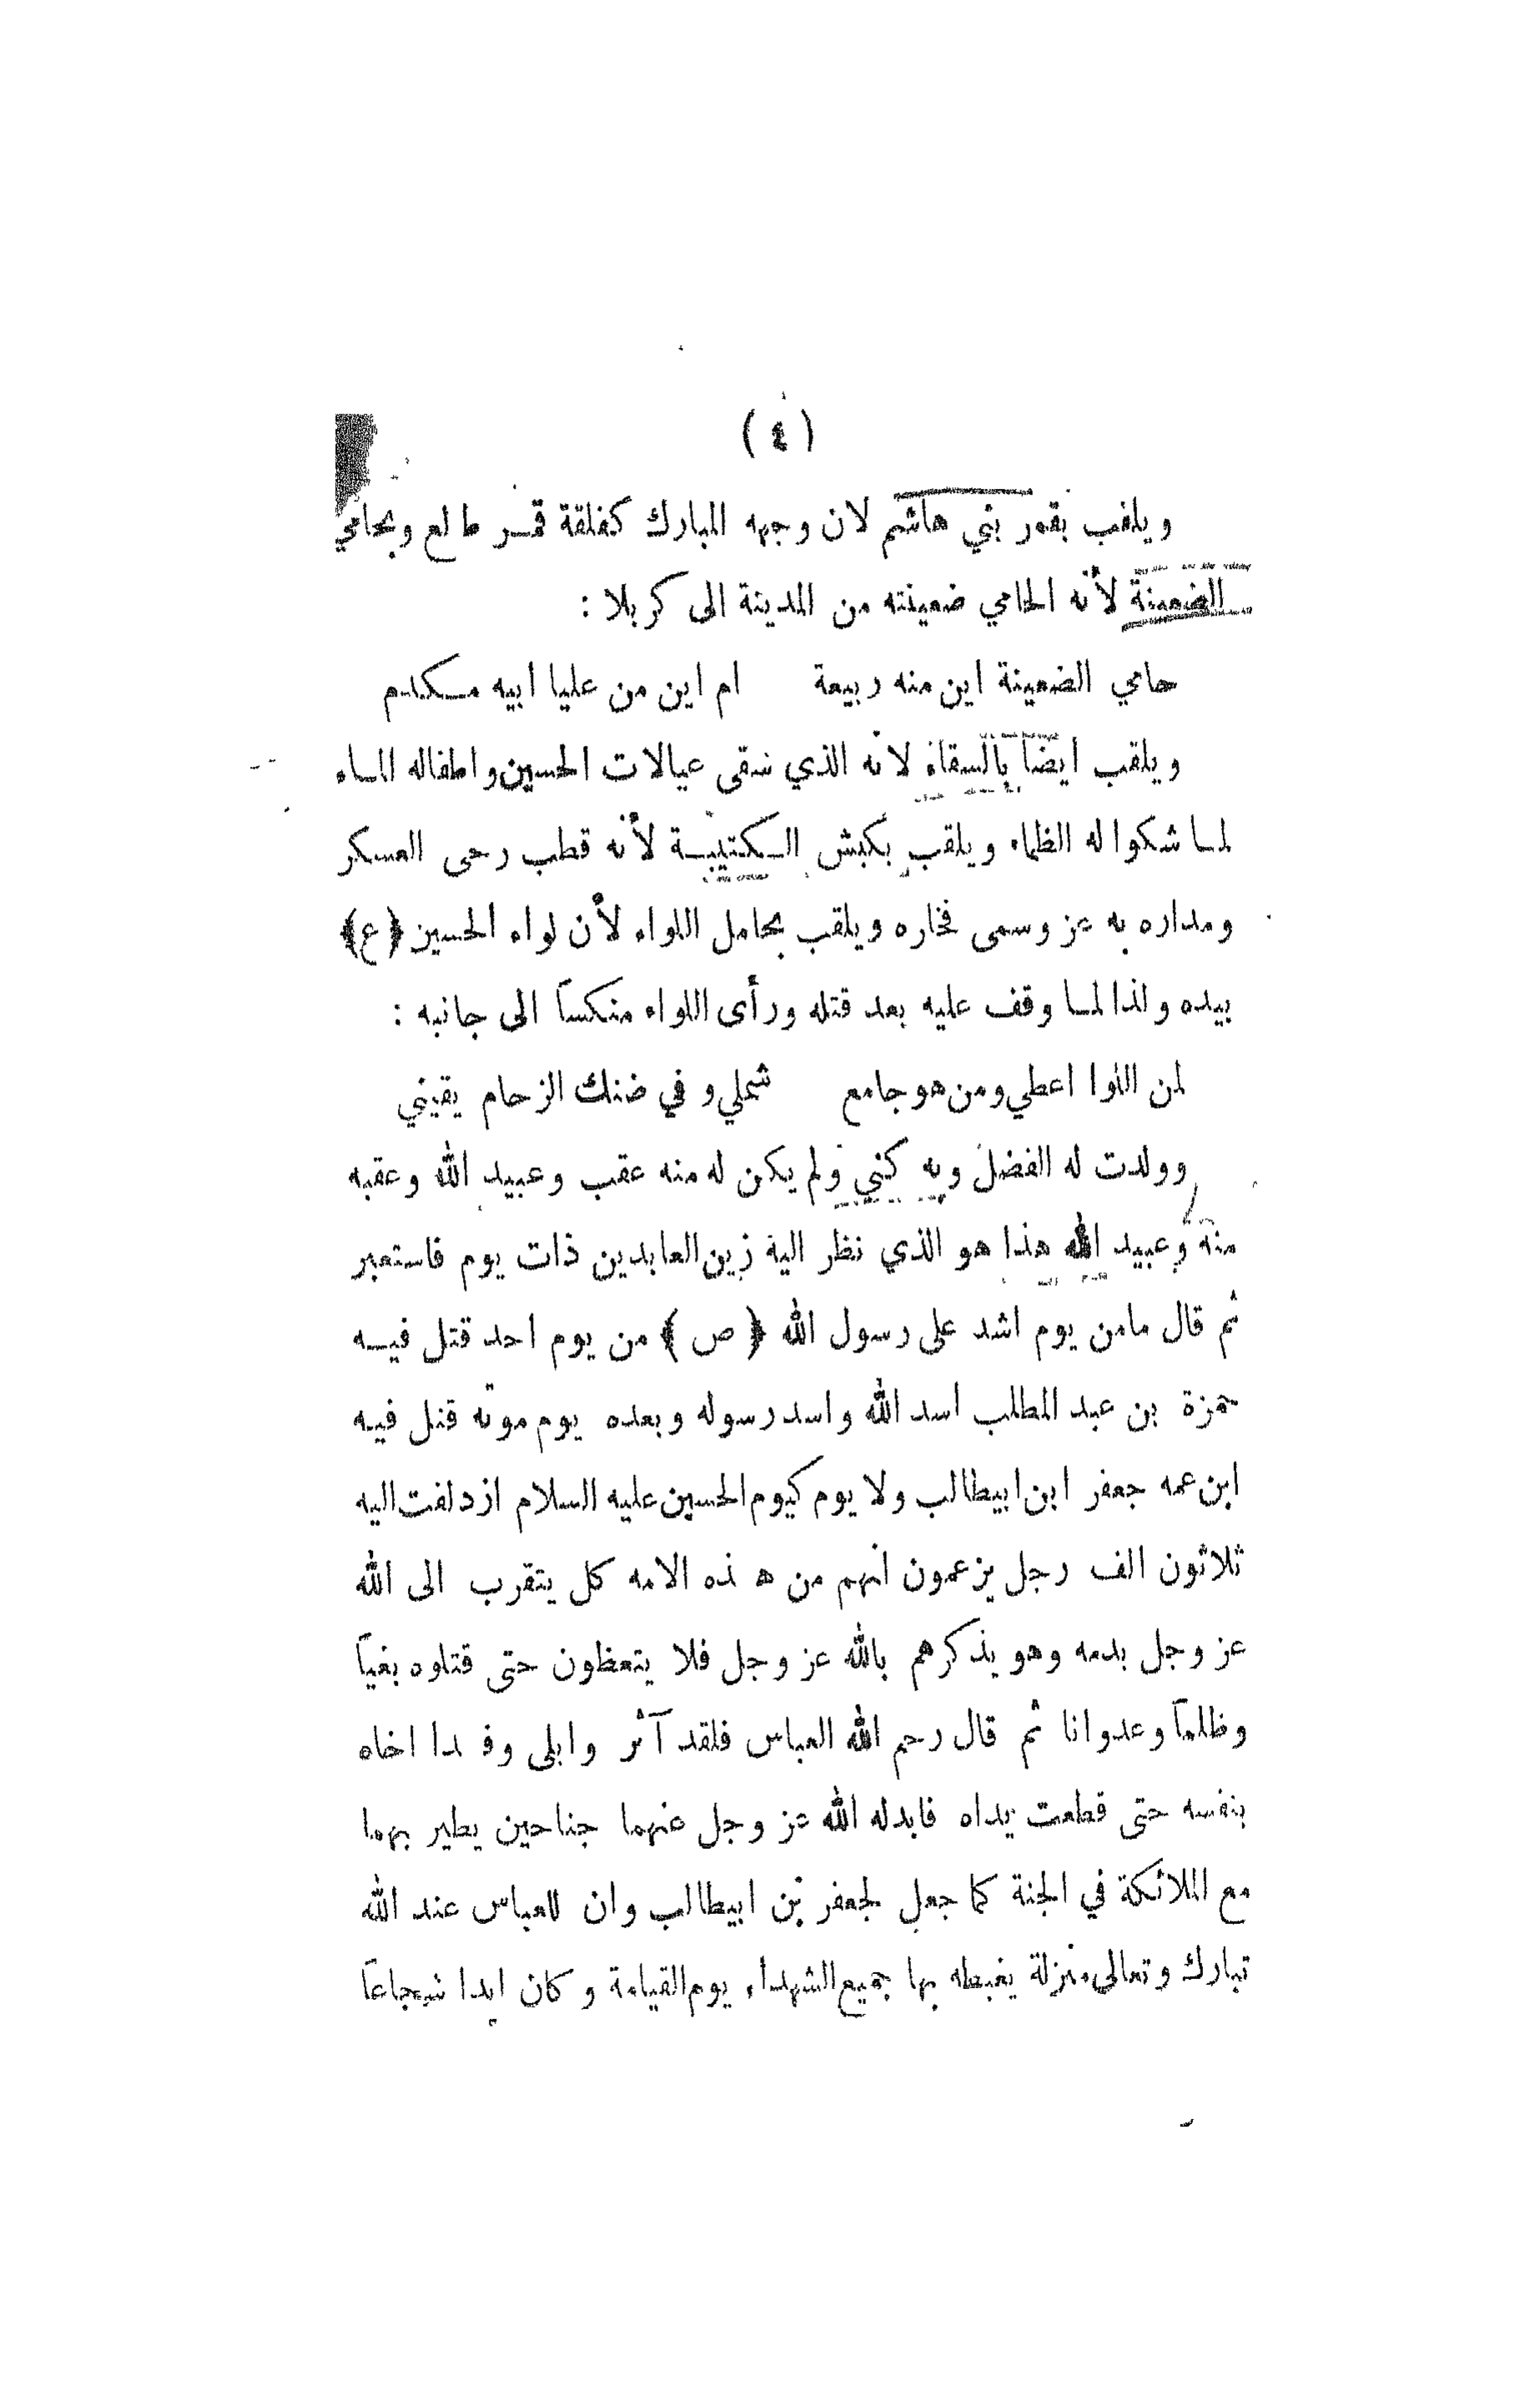 ( ٤ )
ويلقب بقمر بني هاشم لان وجهه المبارك كفلقة قمر طالع وبحامي
الضعينة لأنه الحامي ضعينته من المدينة الى كربلا :
حامي الضعينة اين منه ربيعة ام اين من عليا ابيه مكدم
ويلقب ايضاً بالسقاة لانه الذي سقى عيالات الحسين واطفاله الماء
لما شكوا له الظماء ويلقب بكبش الكتيبة لأنه قطب رحى العسكر
ومداره به عز وسمى فخاره ويلقب بحامل اللواء لأن لواء الحسين (ع)
بيده ولذا لما وقف عليه بعد قتله ورأى اللواء منكساً الى جانبه :
لمن اللوا اعطي ومن هو جامع شملي وفي ضنك الزحام يقيني
وولدت له الفضل وبه كني ولم يكن له منه عقب وعبيد الله وعقبه
منه وعبيد الله هذا هو الذي نظر اليه زين العابدين ذات يوم فاستعبر
ثم قال مامن يوم اشد على رسول الله ( ص ) من يوم احد قتل فيه
حمزة بن عبد المطلب اسد الله واسد رسوله وبعده يوم موته قتل فيه
ابن عمه جعفر ابن ابيطالب ولا يوم كيوم الحسين عليه السلام ازدلفت اليه
ثلاثون الف رجل يزعمون انهم من هذه الامه كل يتقرب الى الله
عز وجل بدمه وهو يذكرهم بالله عز وجل فلا يتعظون حتى قتلوه بغياً
وظلماً وعدوانا ثم قال رحم الله العباس فلقد آثر وابلى وفدا اخاه
بنفسه حتى قطعت يداه فابدله الله عز وجل عنهما جناحين يطير بهما
مع الملائكة في الجنة كما جعل لجعفر بن ابيطالب وان للعباس عند الله
تبارك وتعالى منزلة يغبطه بها جميع الشهداء يوم القيامة وكان ابدا شجاعاً